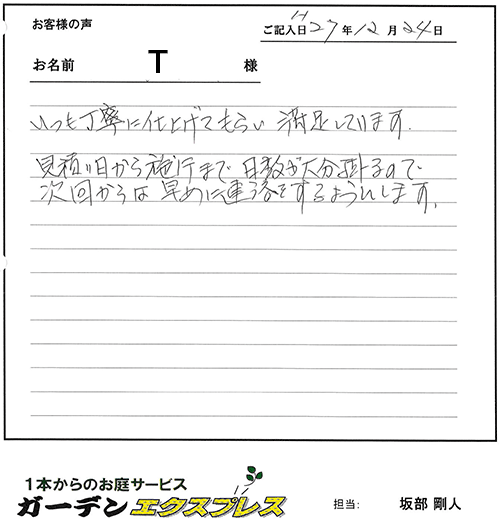 お客様の声
ご記入日 H27年12月24日
お名前 T 様
いつも丁寧に仕上げてもらい 満足しています.
見積り日から施行まで 日数が大分掛るので
次回からは 早めに連絡をするようにします.
1本からのお庭サービス
ガーデンエクスプレス
担当: 坂部 剛人